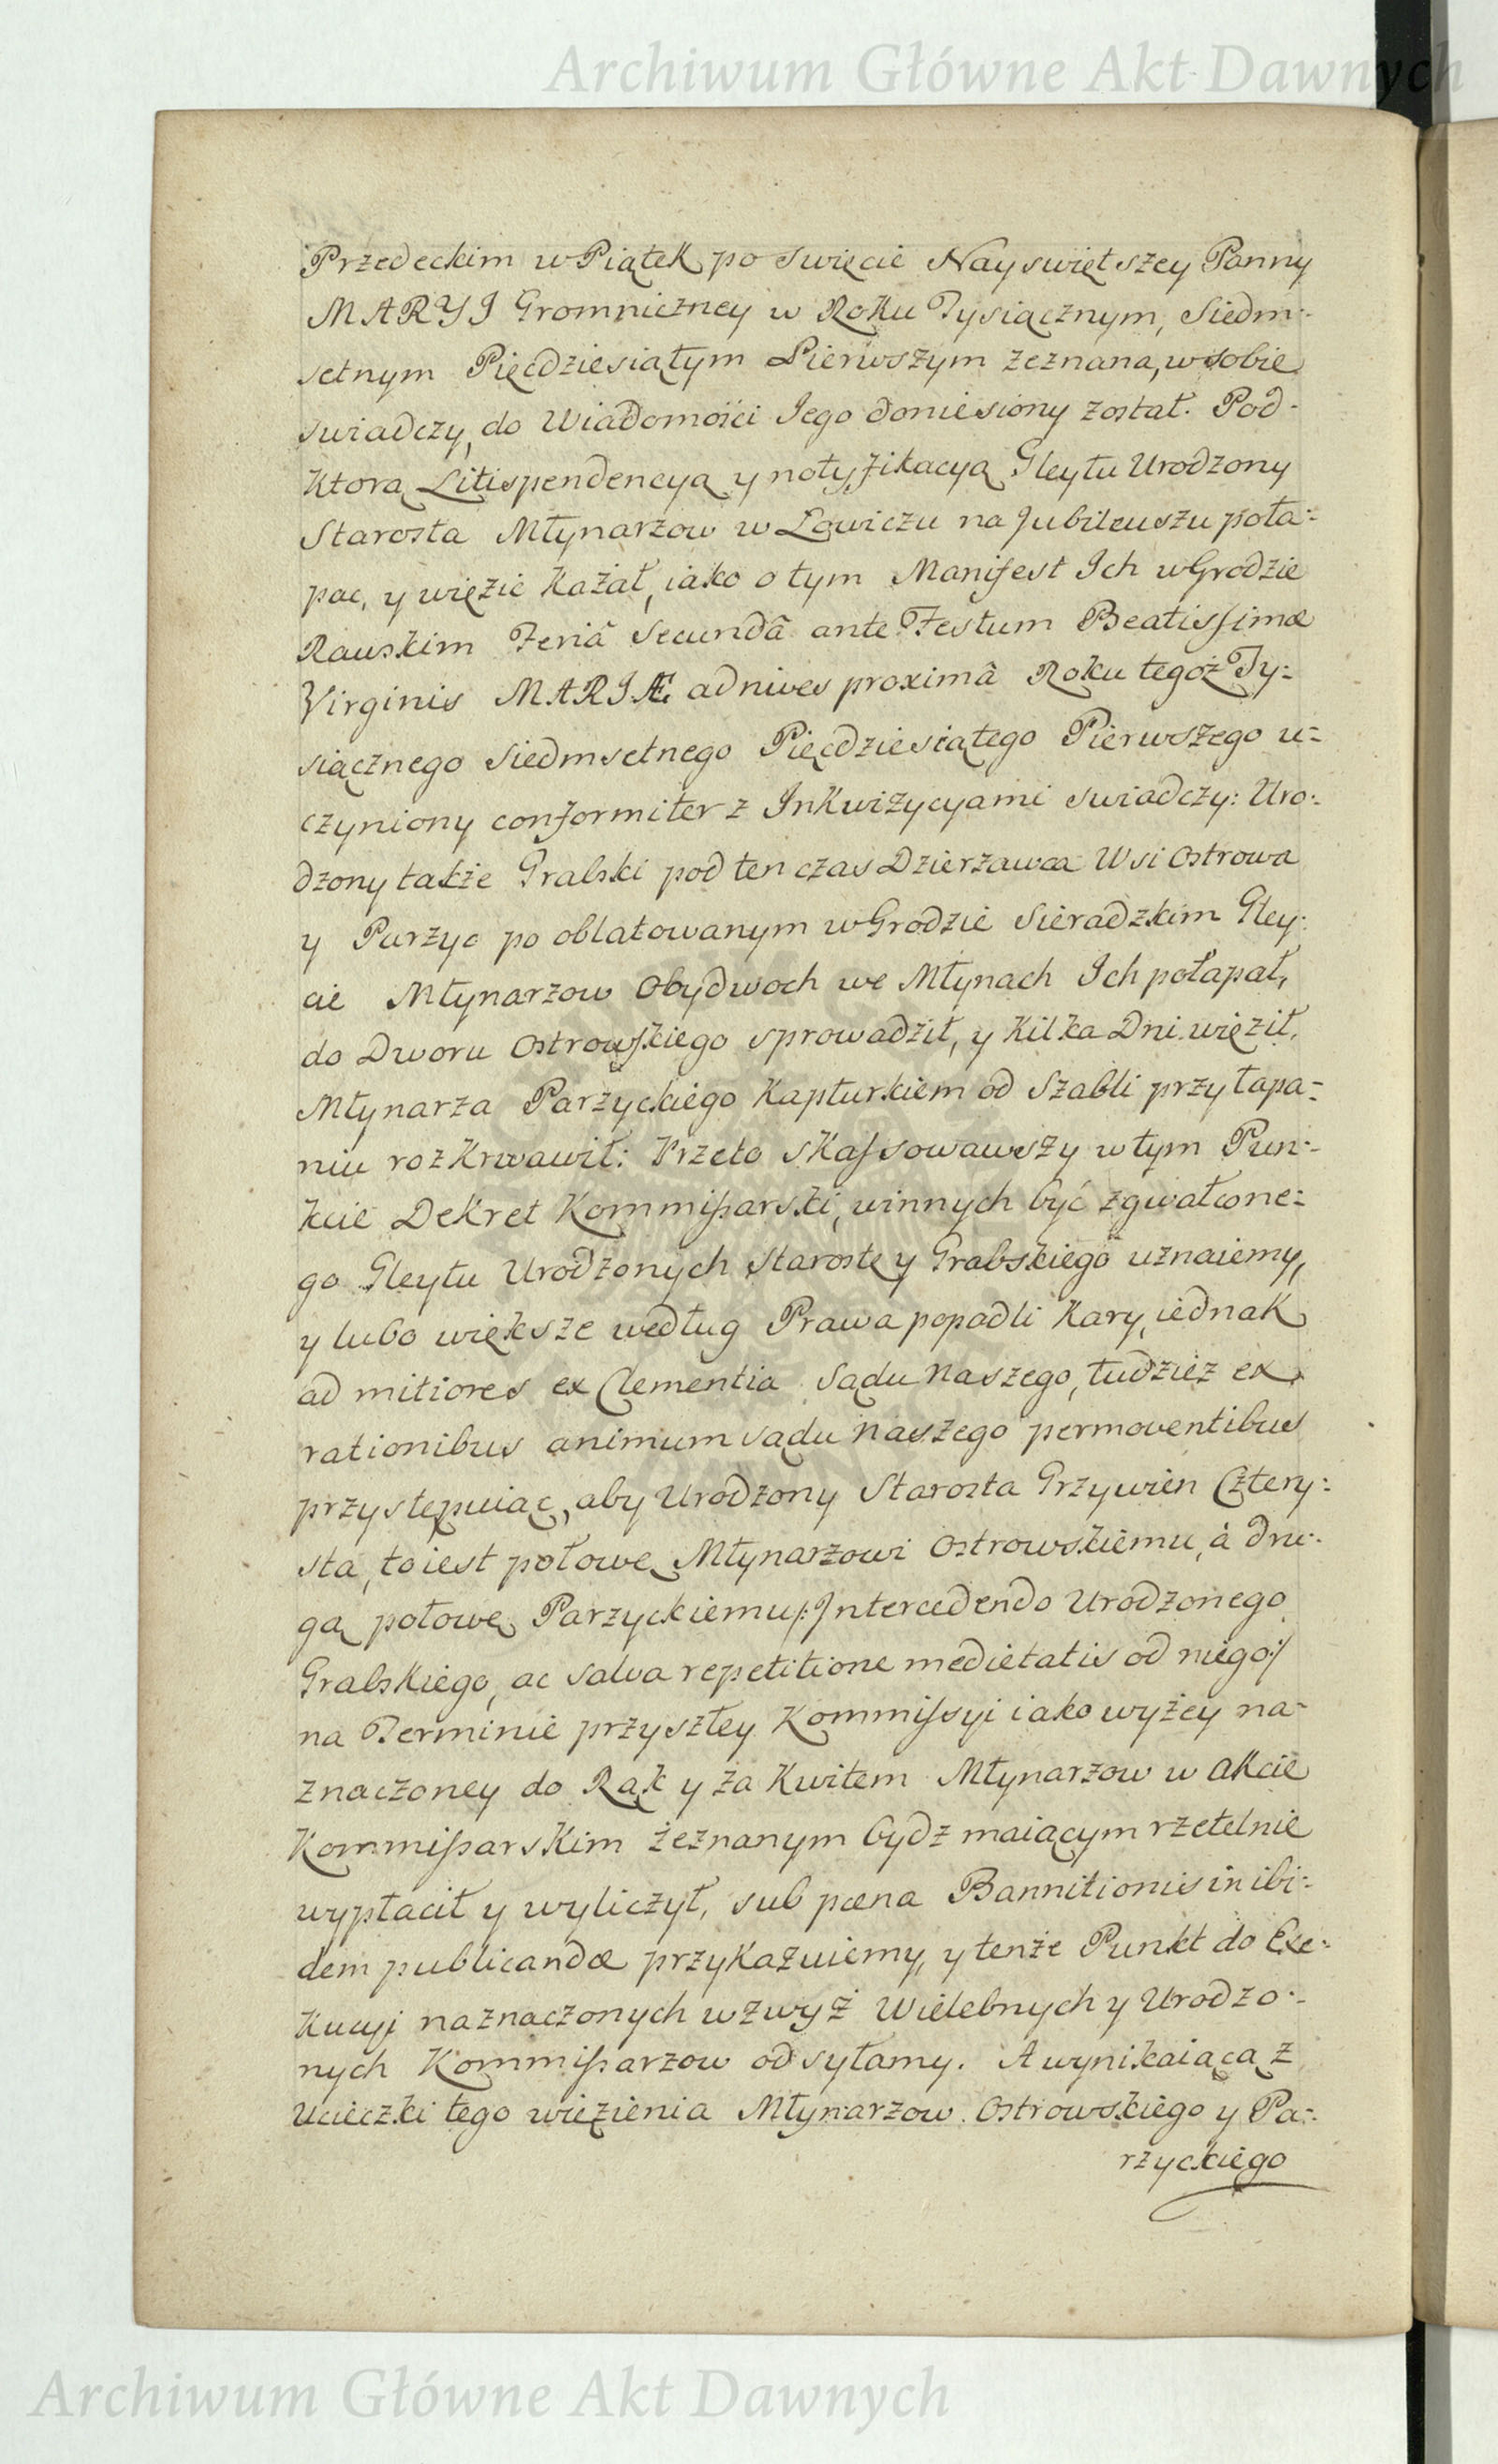 Archiwum Główne Akt Dawnych
Przedeckim w Piątek po swięcie Nayswiętszey Panny
MARYI Gromniczney w Roku Tysiącznym, Siedm-
setnym Pięcdziesiątym Pierwszym zeznana, w sobie
swiadczy, do Wiadomości Jego doniesiony został. Pod-
Ktorą Litispendencyą y notyfikacyą Gleytu Urodzony
Starosta Młynarzow w Łowiczu na Jubileuszu poła-
pac, y więzic Kazał, iako o tym Manifest Ich w Grodzie
Rauskim Feriâ Secundâ ante Festum Beatissimæ
Virginis MARIÆ ad nives proximâ Roku tegoż Ty-
siącznego Siedmsetnego Pięcdziesiątego Pierwszego u-
czyniony conformiter z Inkwizycyami swiadczy: Uro-
dzony także Grabski pod ten czas Dzierzawca Wsi Ostrowa
y Parzyc po oblatowanym w Grodzie Sieradzkim Gley-
cie Młynarzow Obydwoch we Młynach Ich połapał,
do Dworu Ostrowskiego sprowadził, y Kilka Dni więził,
Młynarza Parzyckiego Kapturkiem od Szabli przy łapa-
niu rozkrwawił: Przeto skassowawszy w tym Pun-
kcie Dekret Kommissarski, winnych być zgwałcone-
go Gleytu Urodzonych Starostę y Grabskiego uznaiemy,
y lubo większe według Prawa popadli Kary, iednak
ad mitiores ex Clementia Sądu Naszego, tudziez ex
rationibus animum sądu naszego permoventibus
przystępuiąc, aby Urodzony Starosta Grzywien Cztery-
sta, to iest połowę Młynarzowi Ostrowskiemu, à dru-
gą połowę Parzyckiemu /: Intercedendo Urodzonego
Grabskiego, ac salva repetitione medietatis od niego :/
na Terminie przyszłey Kommissyi iako wyżey na-
znaczoney do Rąk y za Kwitem Młynarzow w Akcie
Kommissarskim zeznanym bydz maiącym rzetelnie
wypłacił y wyliczył, sub pœna Bannitionis in ibi-
dem publicandæ przykazuiemy, y tenże Punkt do Exe-
kucyi naznaczonych wzwyż Wielebnych y Urodzo-
nych Kommissarzow odsyłamy. A wynikaiącą z
Ucieczki tego więzienia Młynarzow Ostrowskiego y Pa-
rzyckiego
Archiwum Główne Akt Dawnych